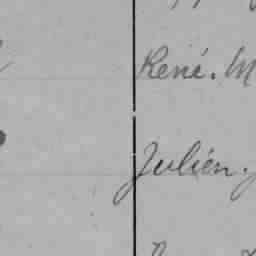 René. M
Julién.